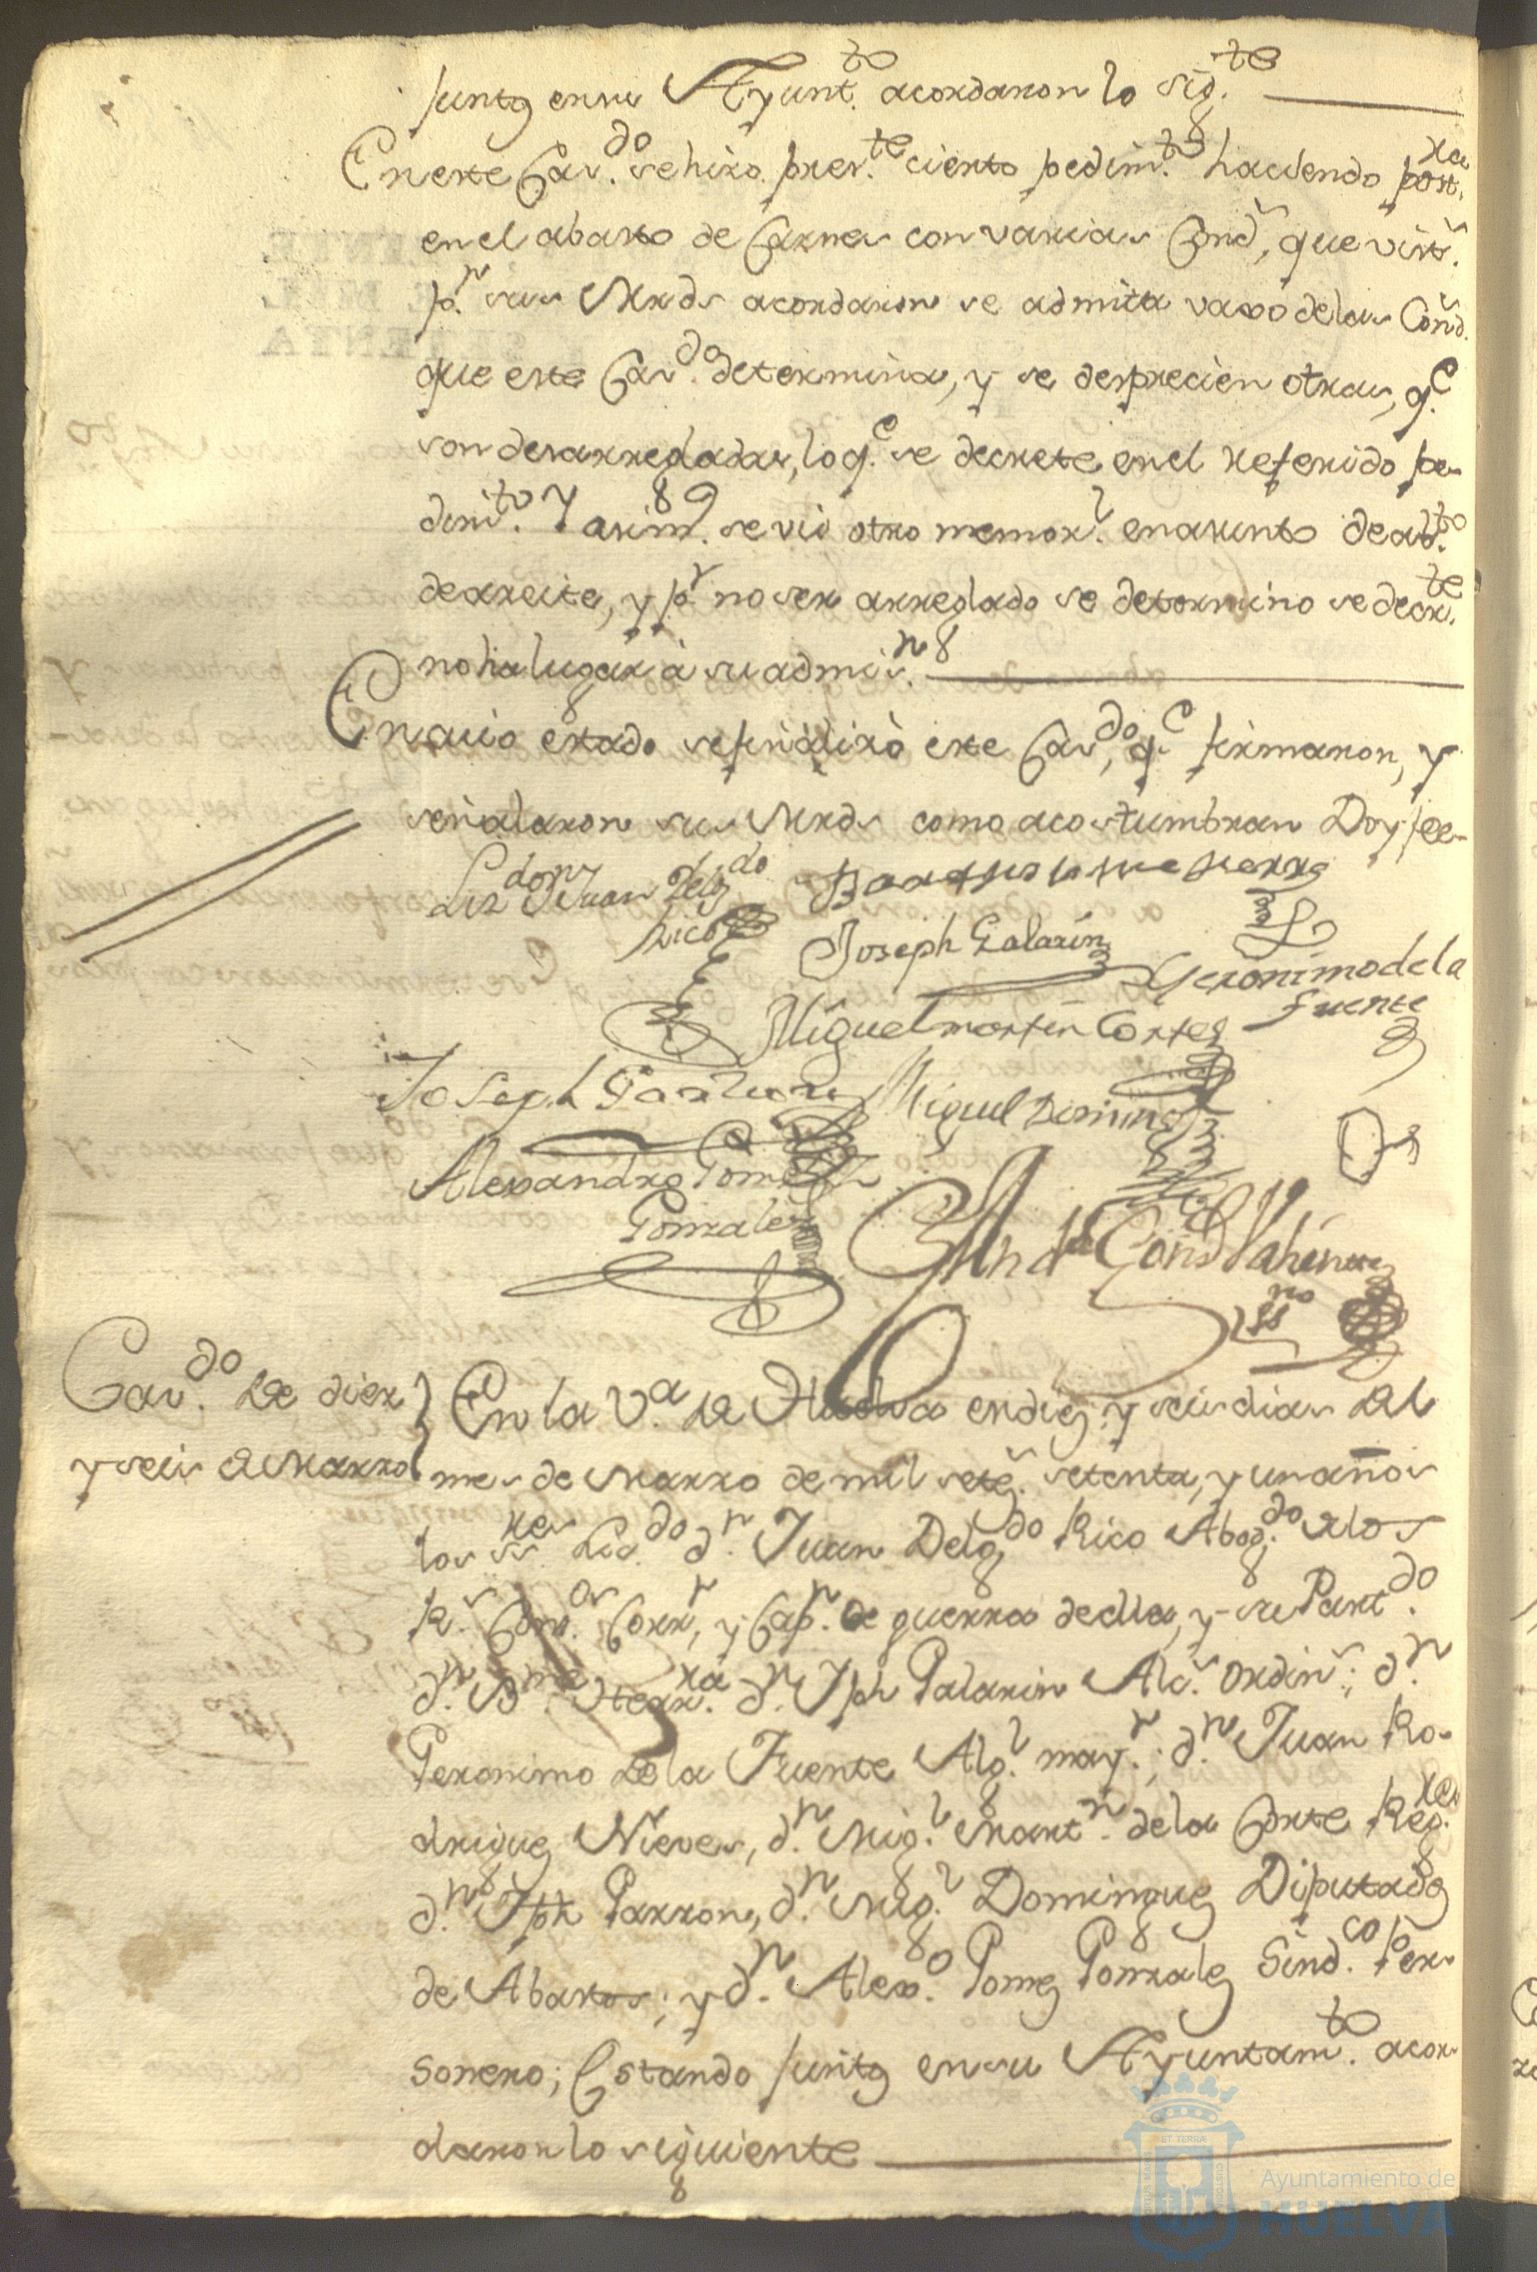 juntos en su Ayunt.to acordaron lo sig.te
En este Cav.do se hizo pres.te cierto pedim.to haciendo post.ra
en el abasto de Carnes con varias Cond.s, que vist.s
p.r sus Mrds acordaron se admita vaxo de las Cond.s
que este Cav.do determina, y se desprecien otras, q.e
son desarregladas, lo q.e se decrete en el referido pe-
dim.to Y asim.o se vió otro memor.l en asunto de ab.to
de azeite, y p.r no ser arreglado se determino se decr.te
no ha lugar à su admis.n
En cuio estado se finalizò este Cav.do, q.e firmaron, y
señalaron sus Mrds como acostumbran Doy fee-
Liz.do Dn Juan Delg.do
Rico
Joseph Galazin
Geronimo de la
Fuente
Miguel martin Cortes
Joseph Garzon
Miguel Domingz
Alexandro Gomez
Gonzalez
Cav.do de diez
y seis de Marzo
En la V.a de Huelva en diez, y seis dias del
mes de Marzo de mil sete.s setenta, y un años
los ss.res Lic.do d.n Juan Delg.do Rico Abog.do de los
R.s Cons.os Corr.r, y Cap.n de guerra de ella, y su Part.do
d.n B.me Hierr.ra d.n Jph Galazin Alc.s Ordin.s; d.n
Geronimo de la Fuente Alg.l may.r; d.n Juan Ro-
driguez Nieves, d.n Mig.l Mart.n de la Corte Reg.res
d.n Jph Garzon, d.n Mig.l Dominguez Diputados
de Abastos; y d.n Alex.o Gomez Gonzalez Sind.co Per-
sonero; Estando juntos en su Ayuntam.to acor-
daron lo siguiente
Ayuntamiento de
HUELVA